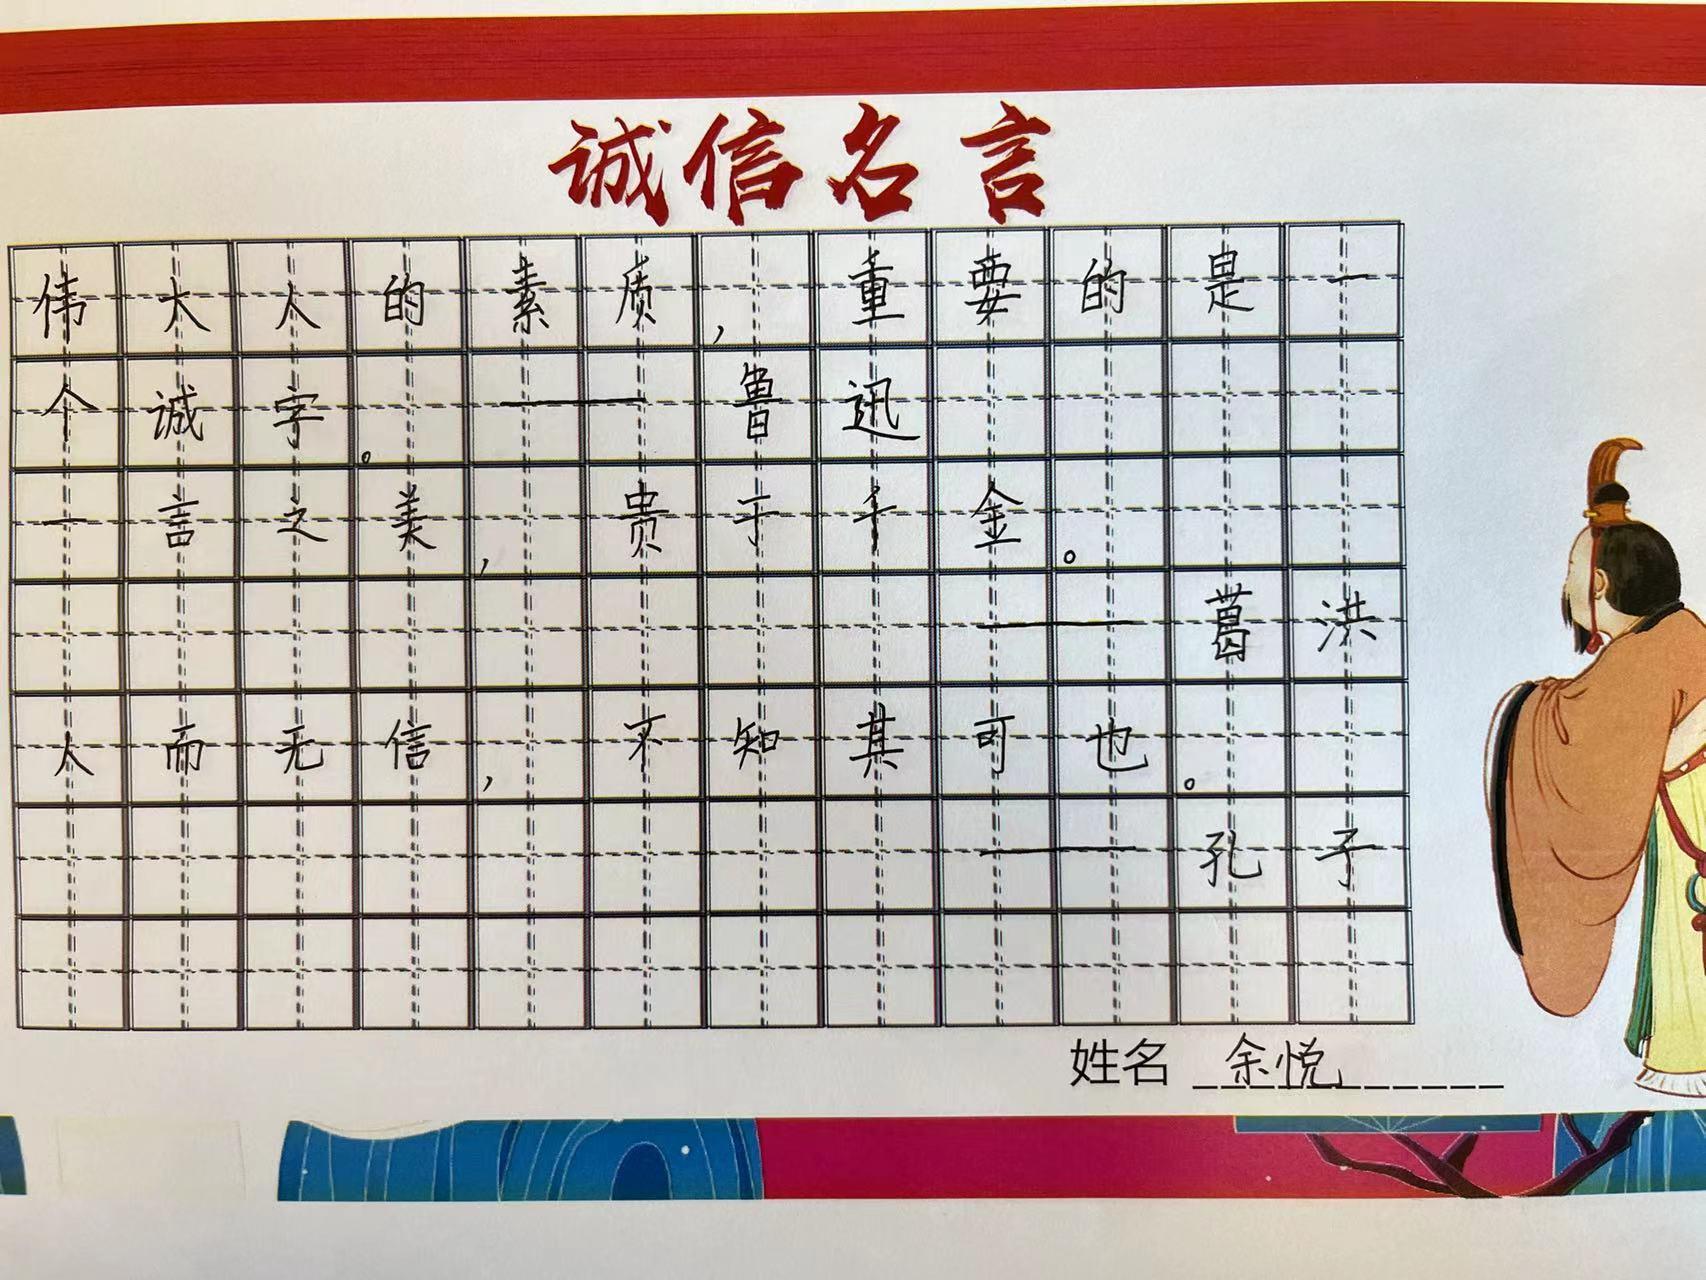 诚信名言
伟大人的素质，重要的是一
个诚字。——鲁迅
一言之美，贵于千金。
——葛洪
人而无信，不知其可也。
——孔子
姓名 余悦